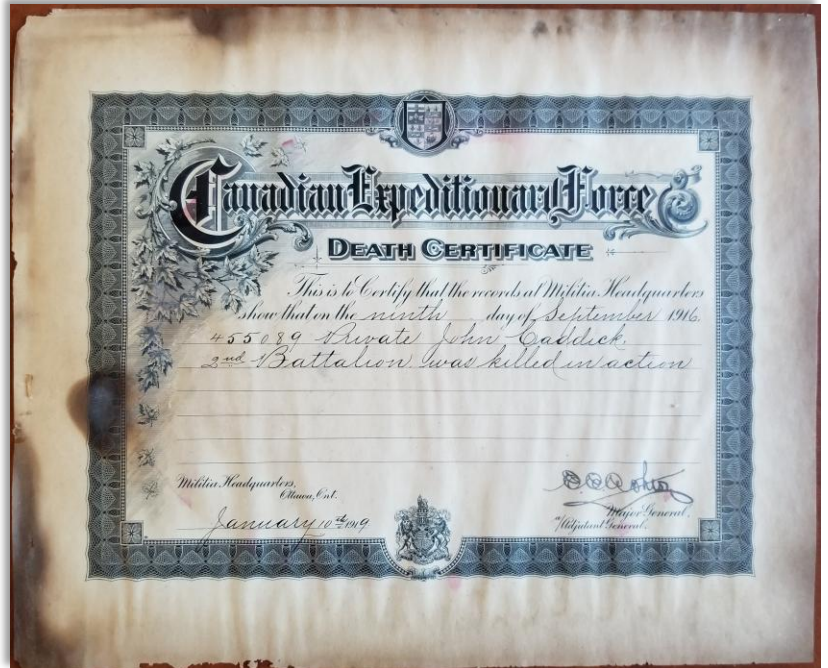 Canadian Expeditionary Force
DEATH CERTIFICATE
This is to Certify that the records at Militia Headquarters
show that on the ninth day of September 1916
455089 Private John Caddick,
2nd Battalion was killed in action
Militia Headquarters,
Ottawa, Ont.
January 10th 1919
Major General.
Adjutant General.